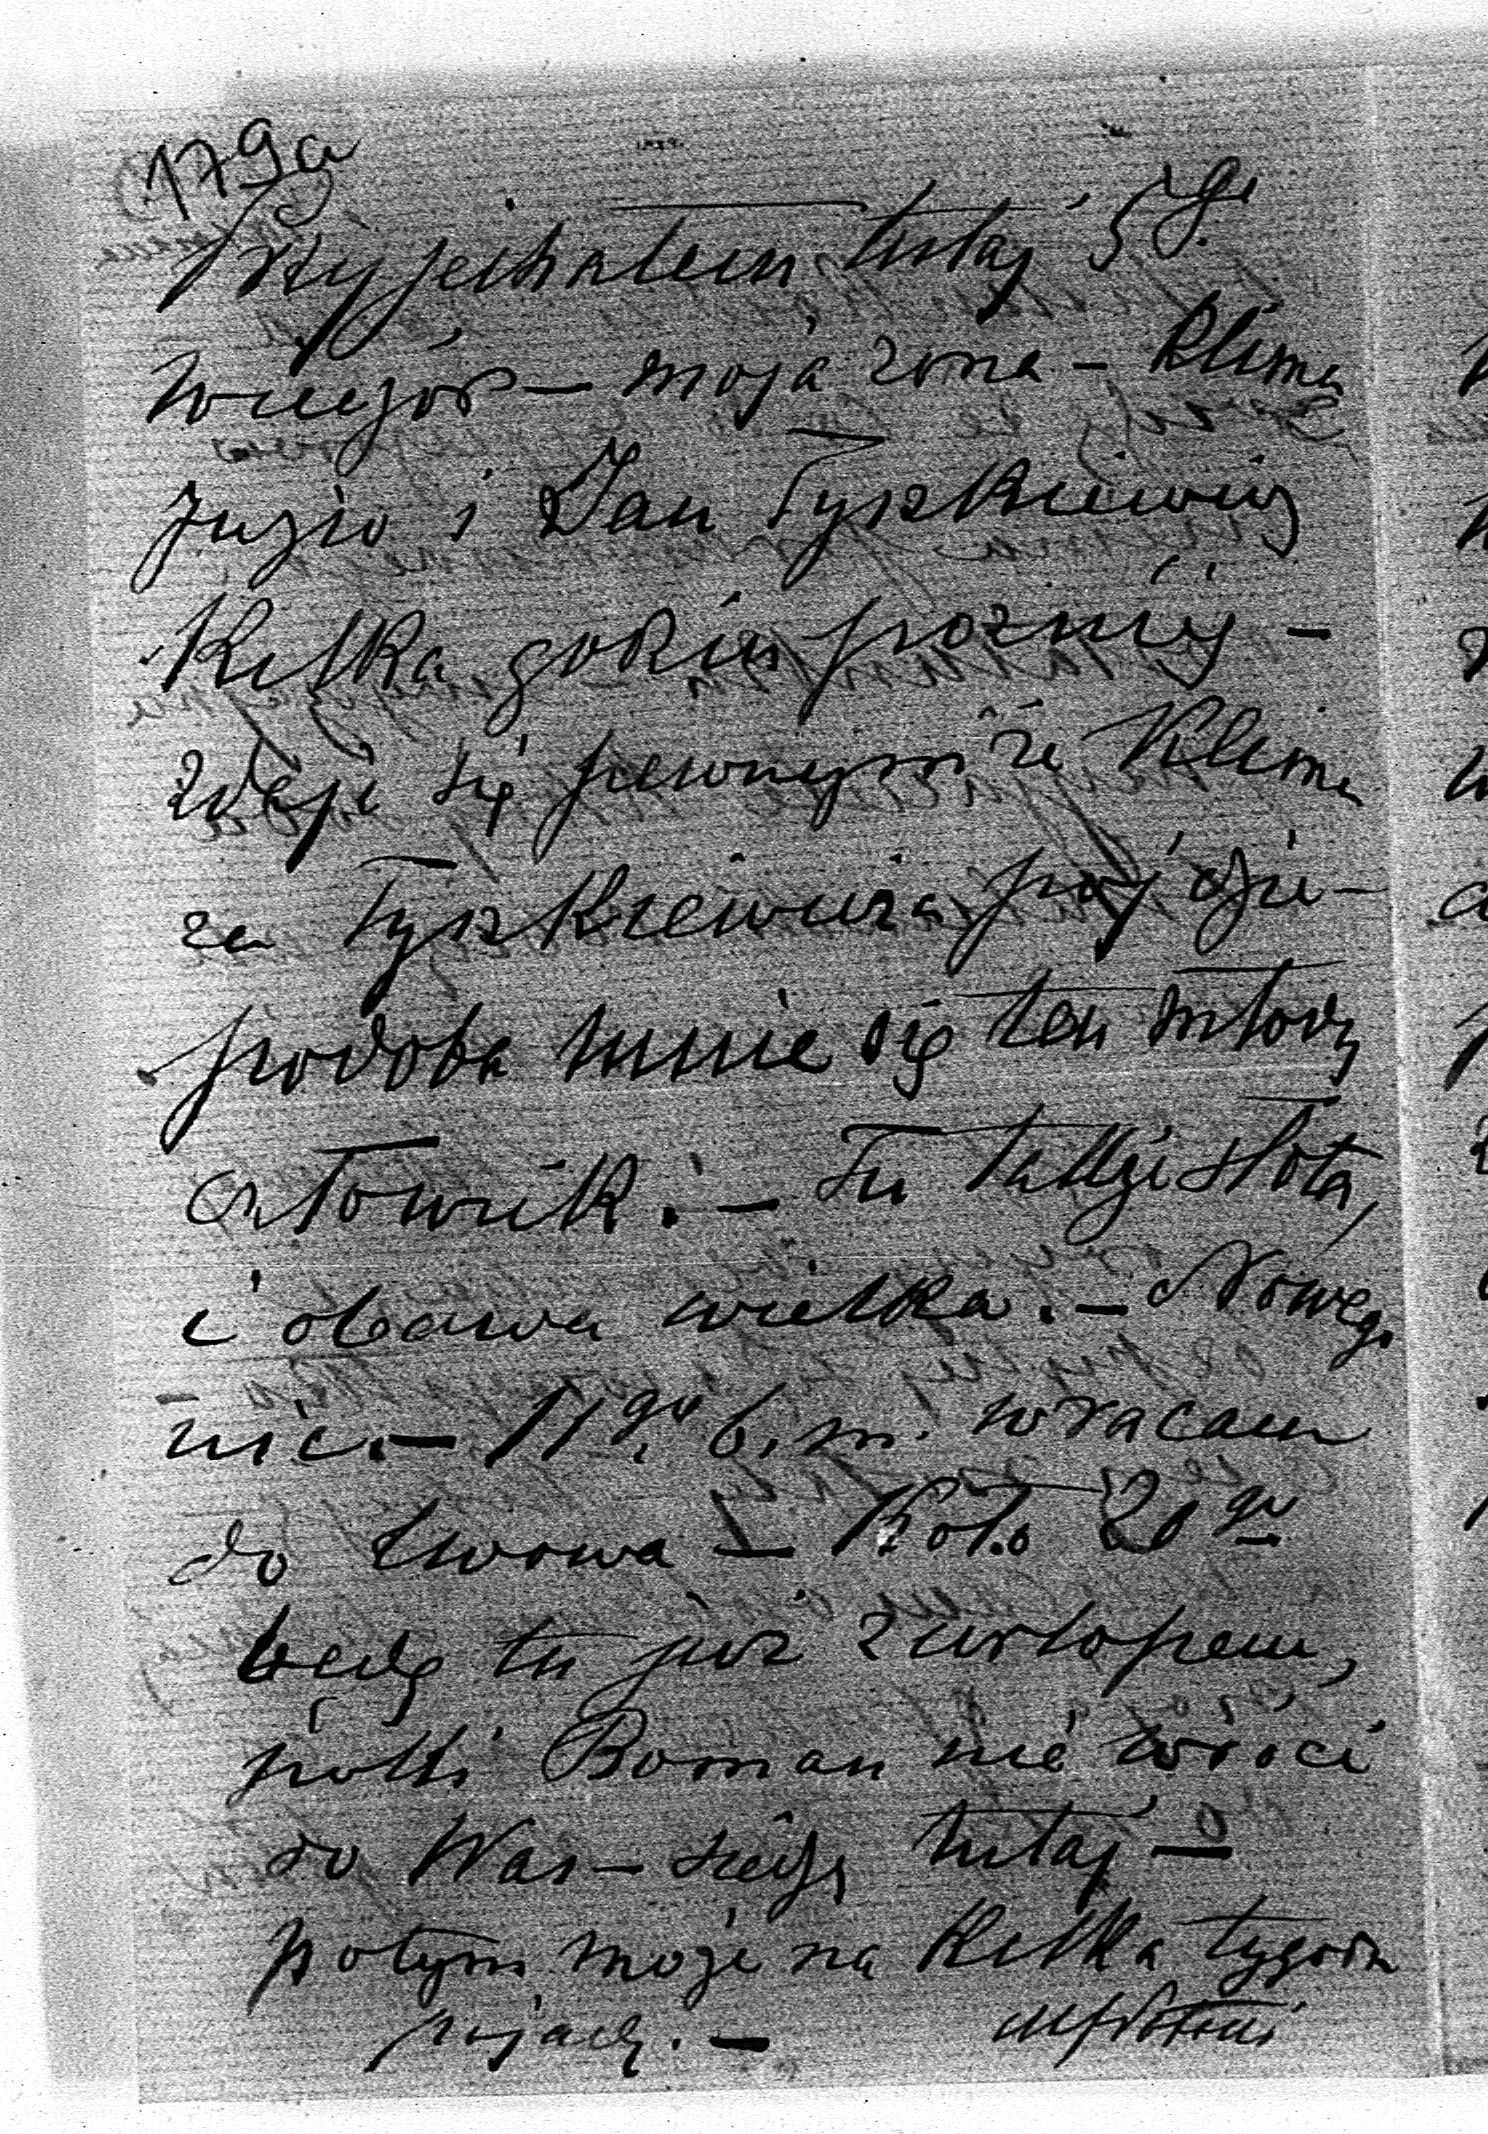 179a
Przyjechałem tutaj 5go
wieczór — moja żona — Klima
Juzio i Jan Tyszkiewicz
Kilka godzin pozniej —
zdaje się pewnym że Klima
za Tyszkiewicza pojdzie —
podoba mnie się ten młody
człowiek. — Tu takze słota,
i obawa wielka. — Nowego
nic. — 11go b. m. wracam
do Lwowa — Koło 20go
będę tu już z urlopem,
poki Roman nie wróci
do Was — siedzę tutaj —
potym moze na kilka tygodn
pojadę. —